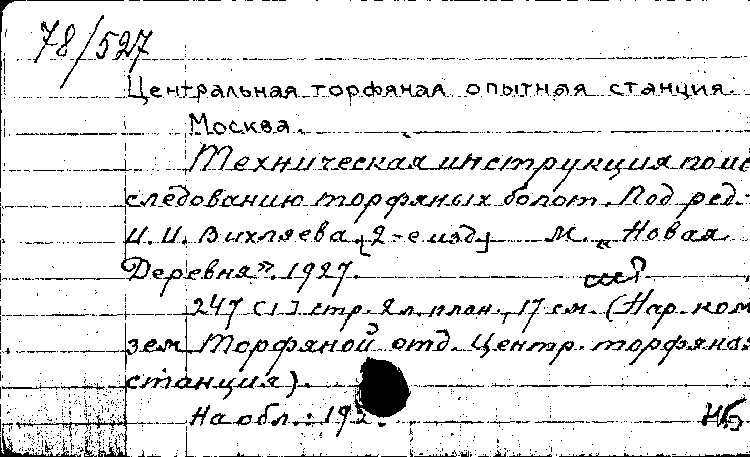 78/527
Центральная торфяная опытная станция.
Москва.
Техническая инструкция по ис
следованию торфяных болот. Под ред.
И. И. Вихляева. [2-е изд] М. „Новая
Деревня". 1927.
247 [1] стр. 2 л. план., 17 см. (Нар. ком
зем Торфяной отд. Центр. торфяная
станция).
На обл.: 192 .
НБ